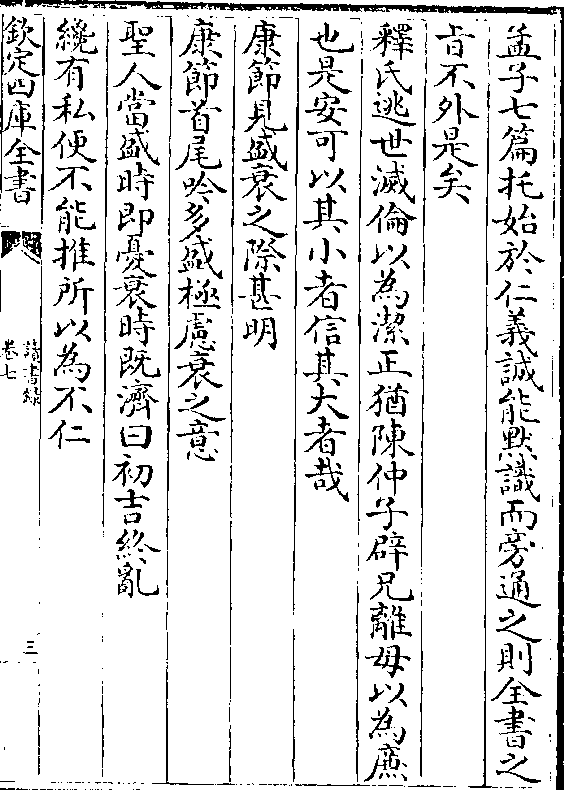 孟子七篇托始於仁義誠能默識而旁通之則全書之
㫖不外是矣
釋氏逃世滅倫以為潔正猶陳仲子辟兄離母以為㢘
也是安可以其小者信其大者哉
康節見盛衰之際甚明
康節首尾吟多盛極慮衰之意
聖人當盛時即憂衰時既濟曰初吉終亂
纔有私便不能推所以為不仁
欽定四庫全書
讀書録
卷七
三